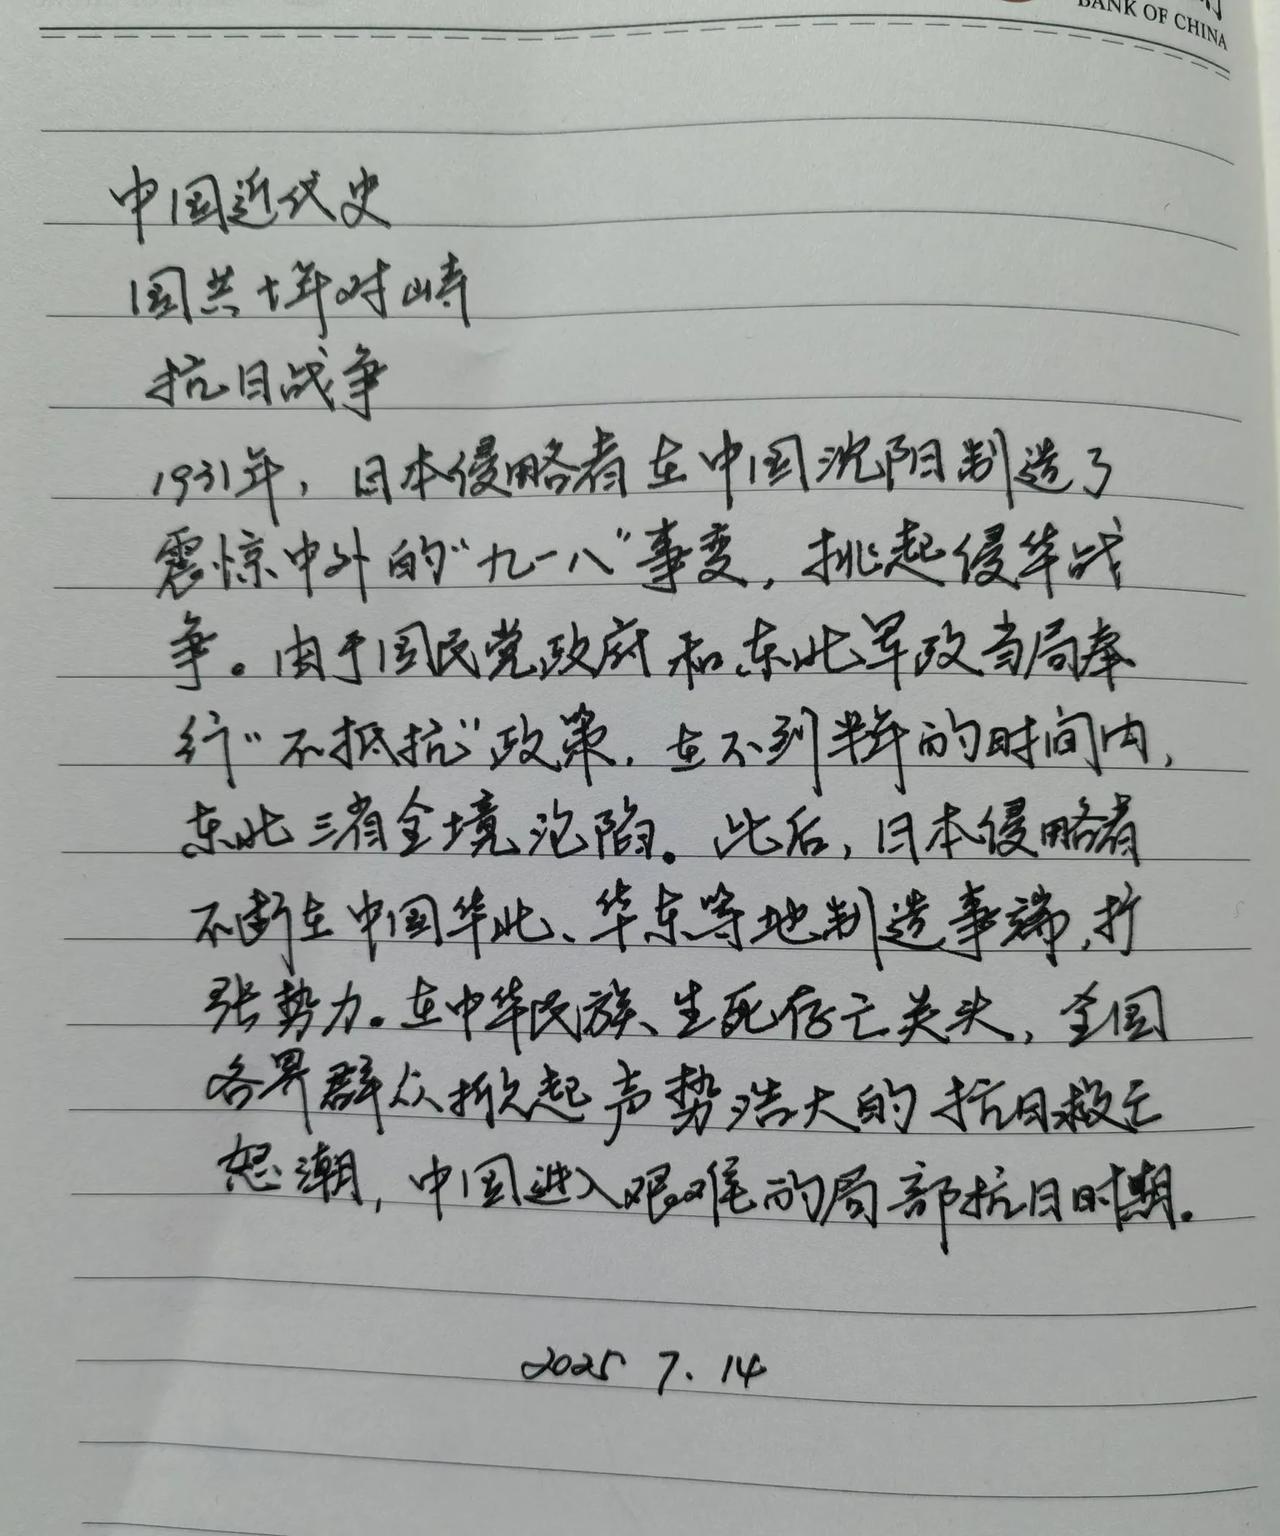 BANK OF CHINA
中国近代史
国共十年对峙
抗日战争
1931年，日本侵略者在中国沈阳制造了
震惊中外的“九一八”事变，挑起侵华战
争。由于国民党政府和东北军政当局奉
行“不抵抗”政策，在不到半年的时间内，
东北三省全境沦陷。此后，日本侵略者
不断在中国华北、华东等地制造事端，扩
张势力。在中华民族、生死存亡关头，全国
各界群众掀起声势浩大的抗日救亡
怒潮，中国进入艰难的局部抗日时期。
2025 7.14